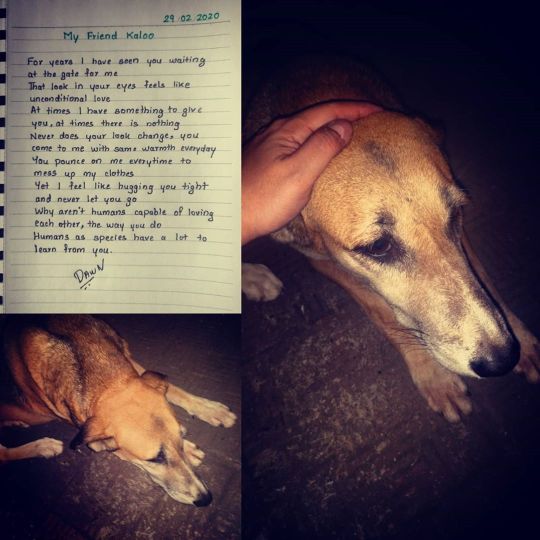 29.02.2020
My Friend Kaloo
For years I have seen you waiting
at the gate for me
That look in your eyes feels like
unconditional love
At times I have something to give
you, at times there is nothing
Never does your look change, you
come to me with same warmth everyday
You pounce on me everytime to
mess up my clothes
Yet I feel like hugging you tight
and never let you go
Why aren't humans capable of loving
each other, the way you do
Humans as species have a lot to
learn from you.
DAWN